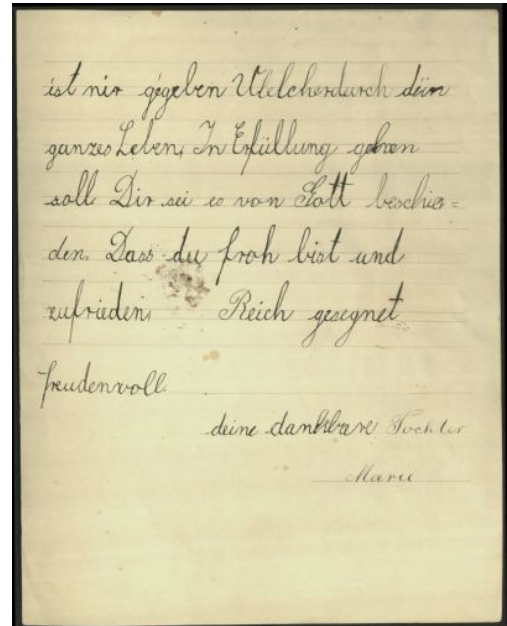 ist nir gegeben Welcherdurch dein
ganzes Leben, In Erfüllung gehen
soll. Dir sei es von Gott beschie=
den. Dass du froh bist und
zufrieden, Reich gesegnet
freudenvoll.
deine dankbare Tochter
Marie